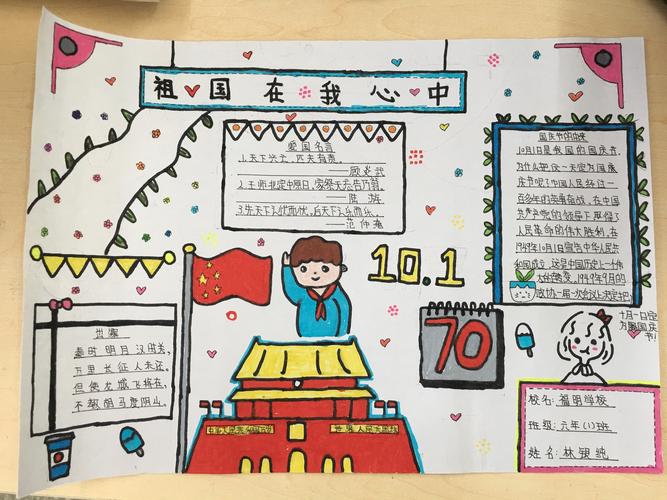 祖国在我心中
爱国名言
1.天下兴亡,匹夫有责。
——顾炎武
2.王师北定中原日,家祭无忘告乃翁。
——陆游
3.先天下之忧而忧,后天下之乐而乐。
——范仲淹
国庆节的由来
10月1日是我的国庆节.
为什么把这一天定为国庆
庆节呢?中国人民经过一
百多年的英勇奋战,在中国
共产党的领导下,取得了
人民革命的伟大胜利,在
1949年10月1日宣告中华人民共
和国成立,这是中国历史上一个伟
大的转变,1949年9月的
政协一届一次会议上决定把
十月一日定
为国庆
节!
10.1
70
出塞
秦时明月汉时关,
万里长征人未还。
但使龙城飞将在,
不教胡马度阴山。
中华人民共和国万岁
世界人民大团结
校名:福明学校
班级:六年(1)班
姓名:林银纯